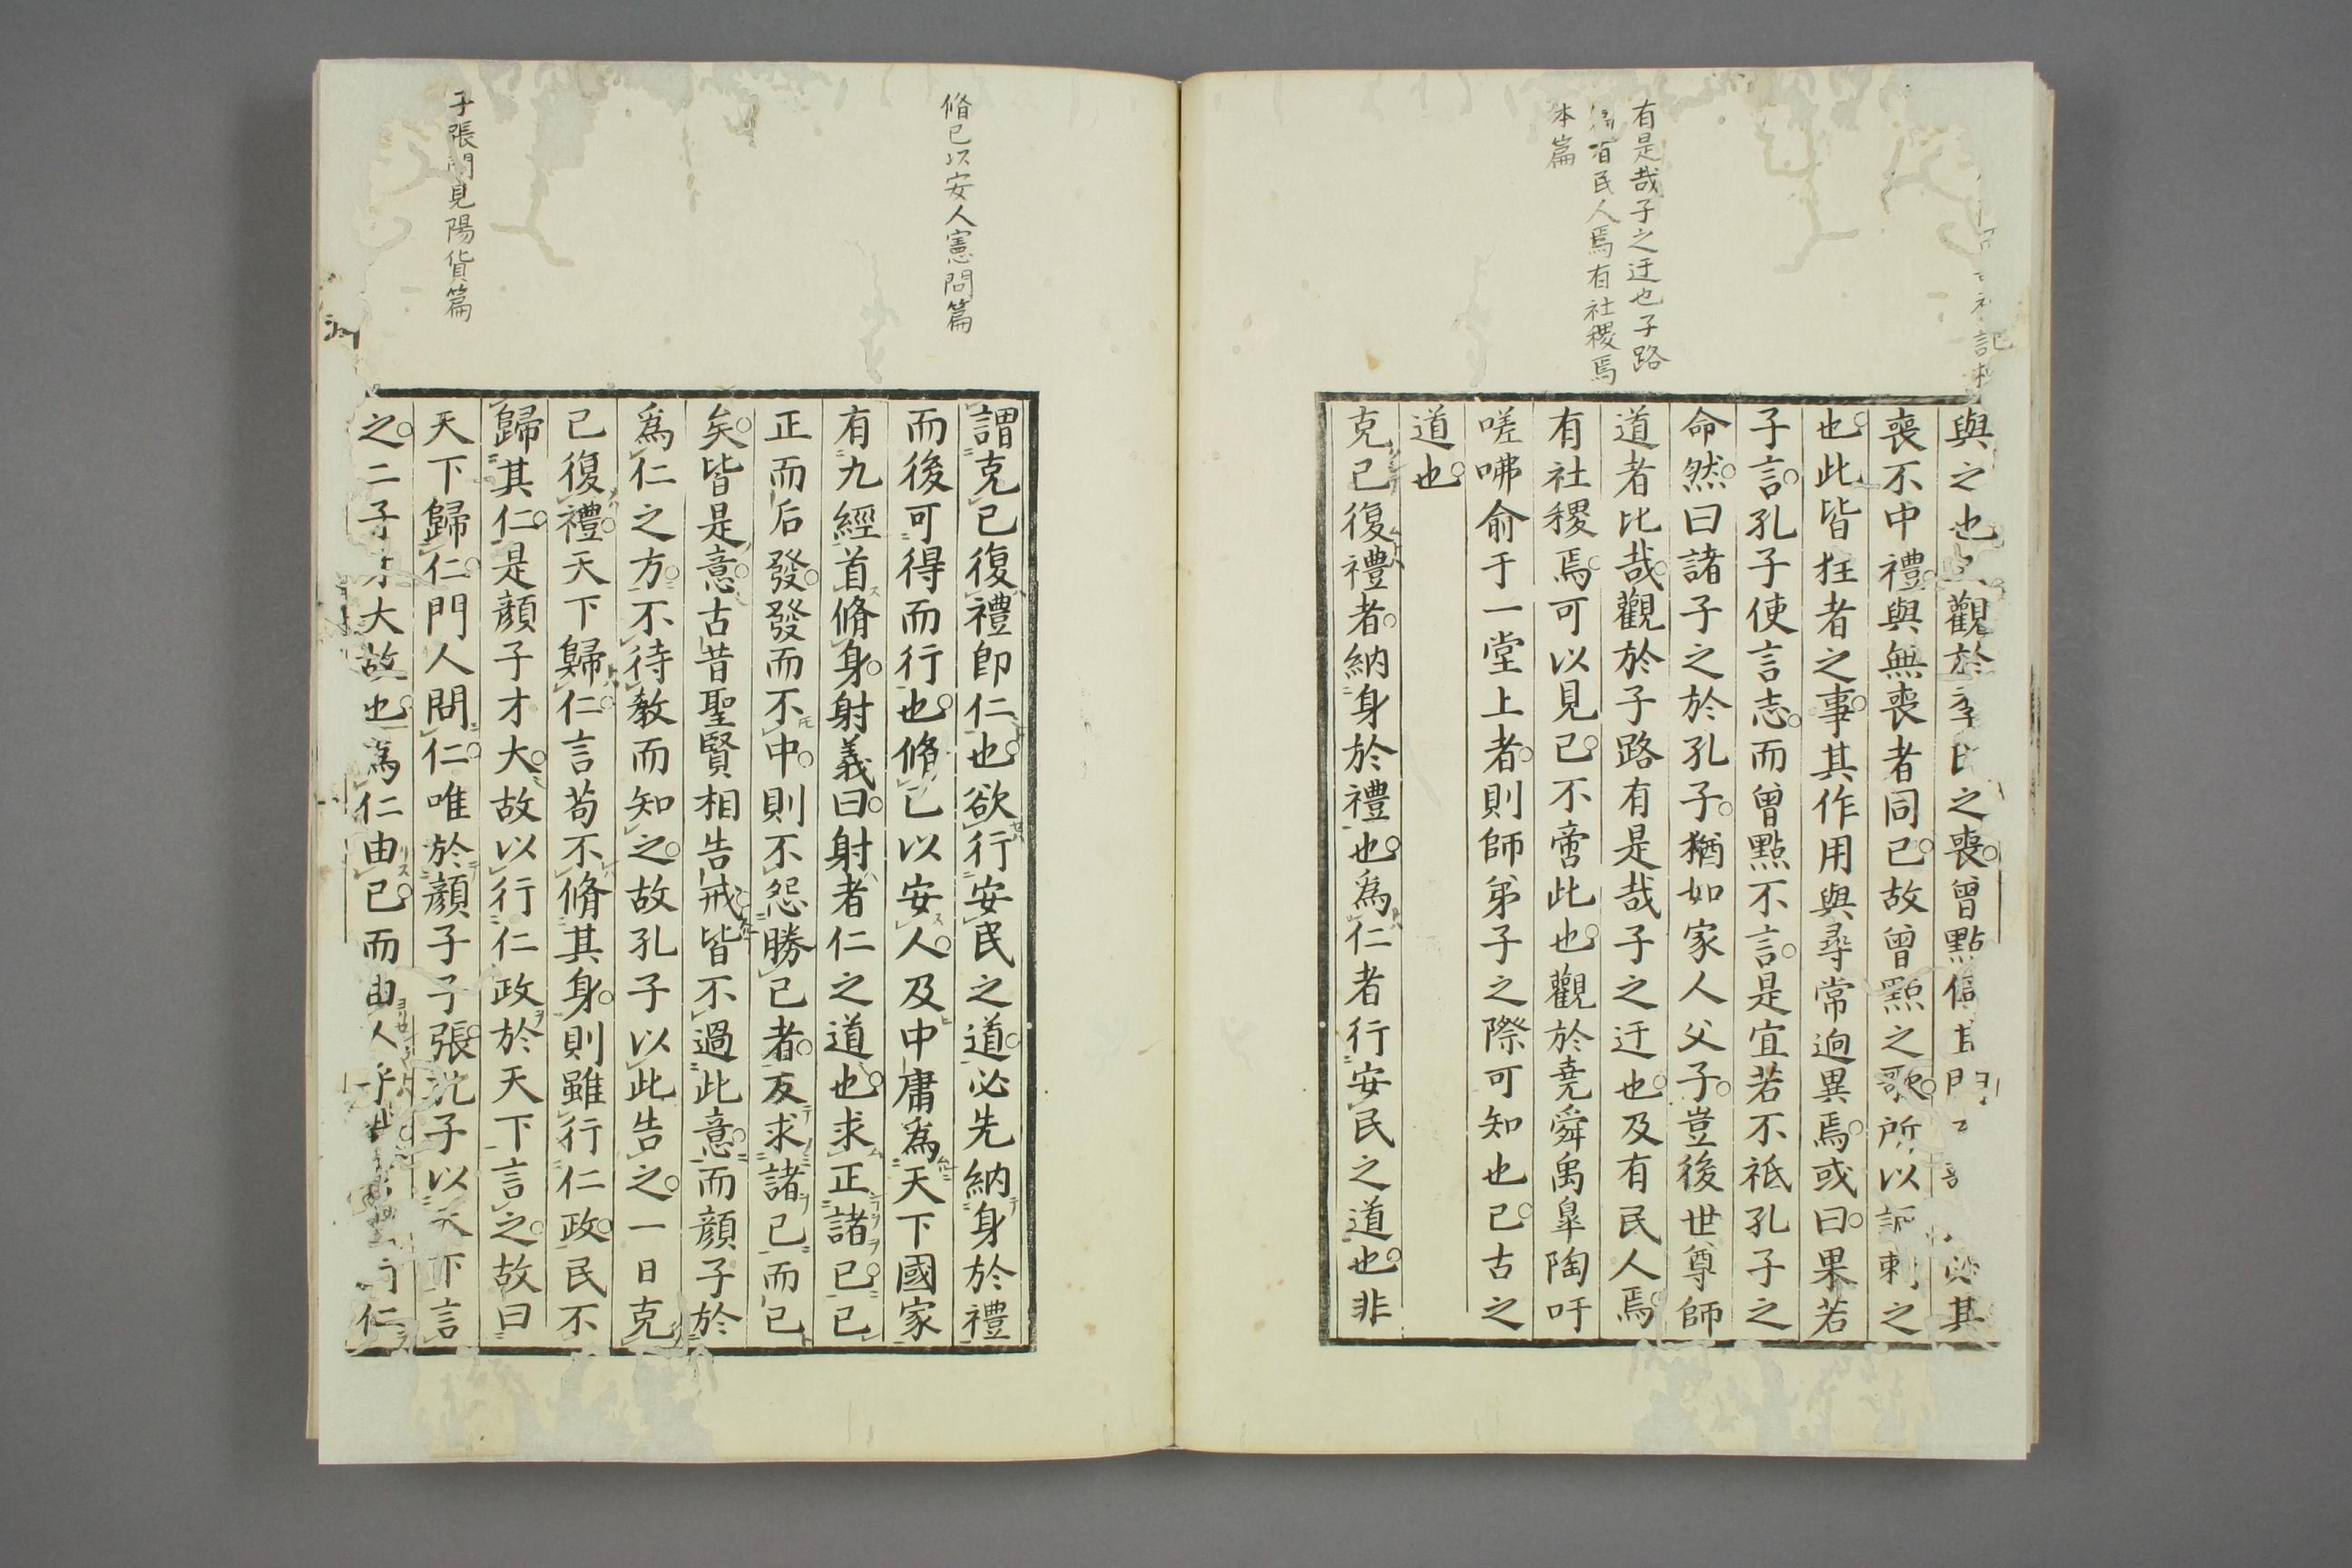 記檀
有是哉子之迂也子路
有民人焉有社稷焉
本篇
與之也觀於季氏之喪曾點倚其門其
喪不中禮與無喪者同已故曾點之歌所以諷刺之
也此皆狂者之事其作用與尋常逈異焉或曰果若
子言孔子使言志而曾點不言是宜若不祗孔子之
命然曰諸子之於孔子猶如家人父子豈後世尊師
道者比哉觀於子路有是哉子之迂也及有民人焉
有社稷焉可以見已不啻此也觀於堯舜禹皐陶吁
嗟咈俞于一堂上者則師弟子之際可知也已古之
道也
克己復禮者納身於禮也爲仁者行安民之道也非
脩己以安人憲問篇
子張問見陽貨篇
謂克己復禮卽仁也欲行安民之道必先納身於禮
而後可得而行也脩己以安人及中庸爲天下國家
有九經首脩身射義曰射者仁之道也求正諸己己
正而后發發而不中則不怨勝己者反求諸己而已
矣皆是意古昔聖賢相告戒皆不過此意而顔子於
爲仁之方不待教而知之故孔子以此告之一日克
己復禮天下歸仁言苟不脩其身則雖行仁政民不
歸其仁是顔子才大故以行仁政於天下言之故曰
天下歸仁門人問仁唯於顔子子張沈子以天下言
之二子才大故也爲仁由己而由人乎哉仁